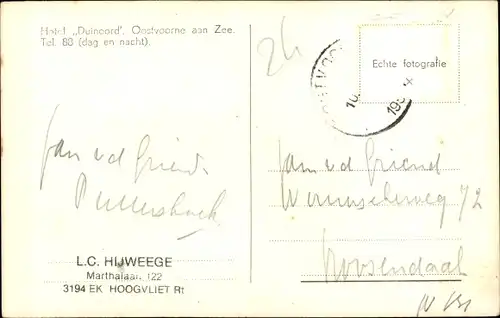 Hotel „Duinoord", Oostvoorne aan Zee.
Tel. 88 (dag en nacht).
2h
Echte fotografie
10.
Jan v d Griend.
Jan v d Griend
72
Roosendaal
L.C. HIJWEEGE
Marthalaan 122
3194 EK HOOGVLIET Rt